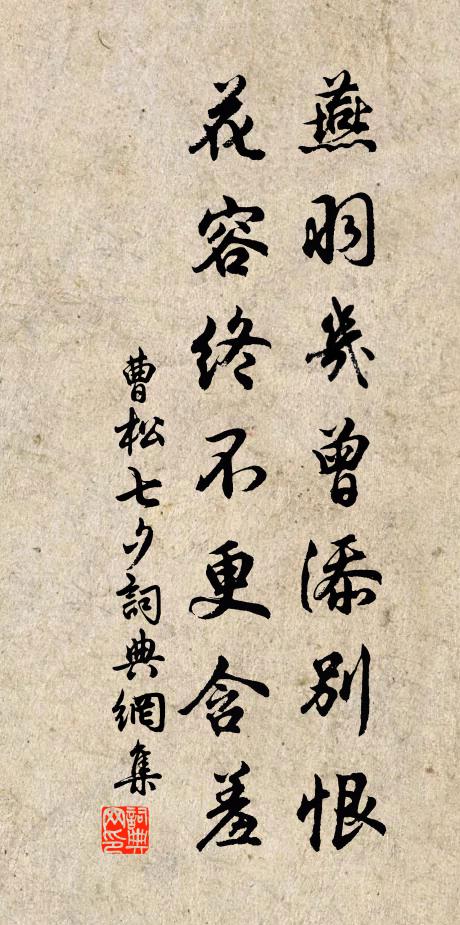 燕羽幾曾添別恨
花容終不更含羞
曹松七夕詞典網集
詞典网印